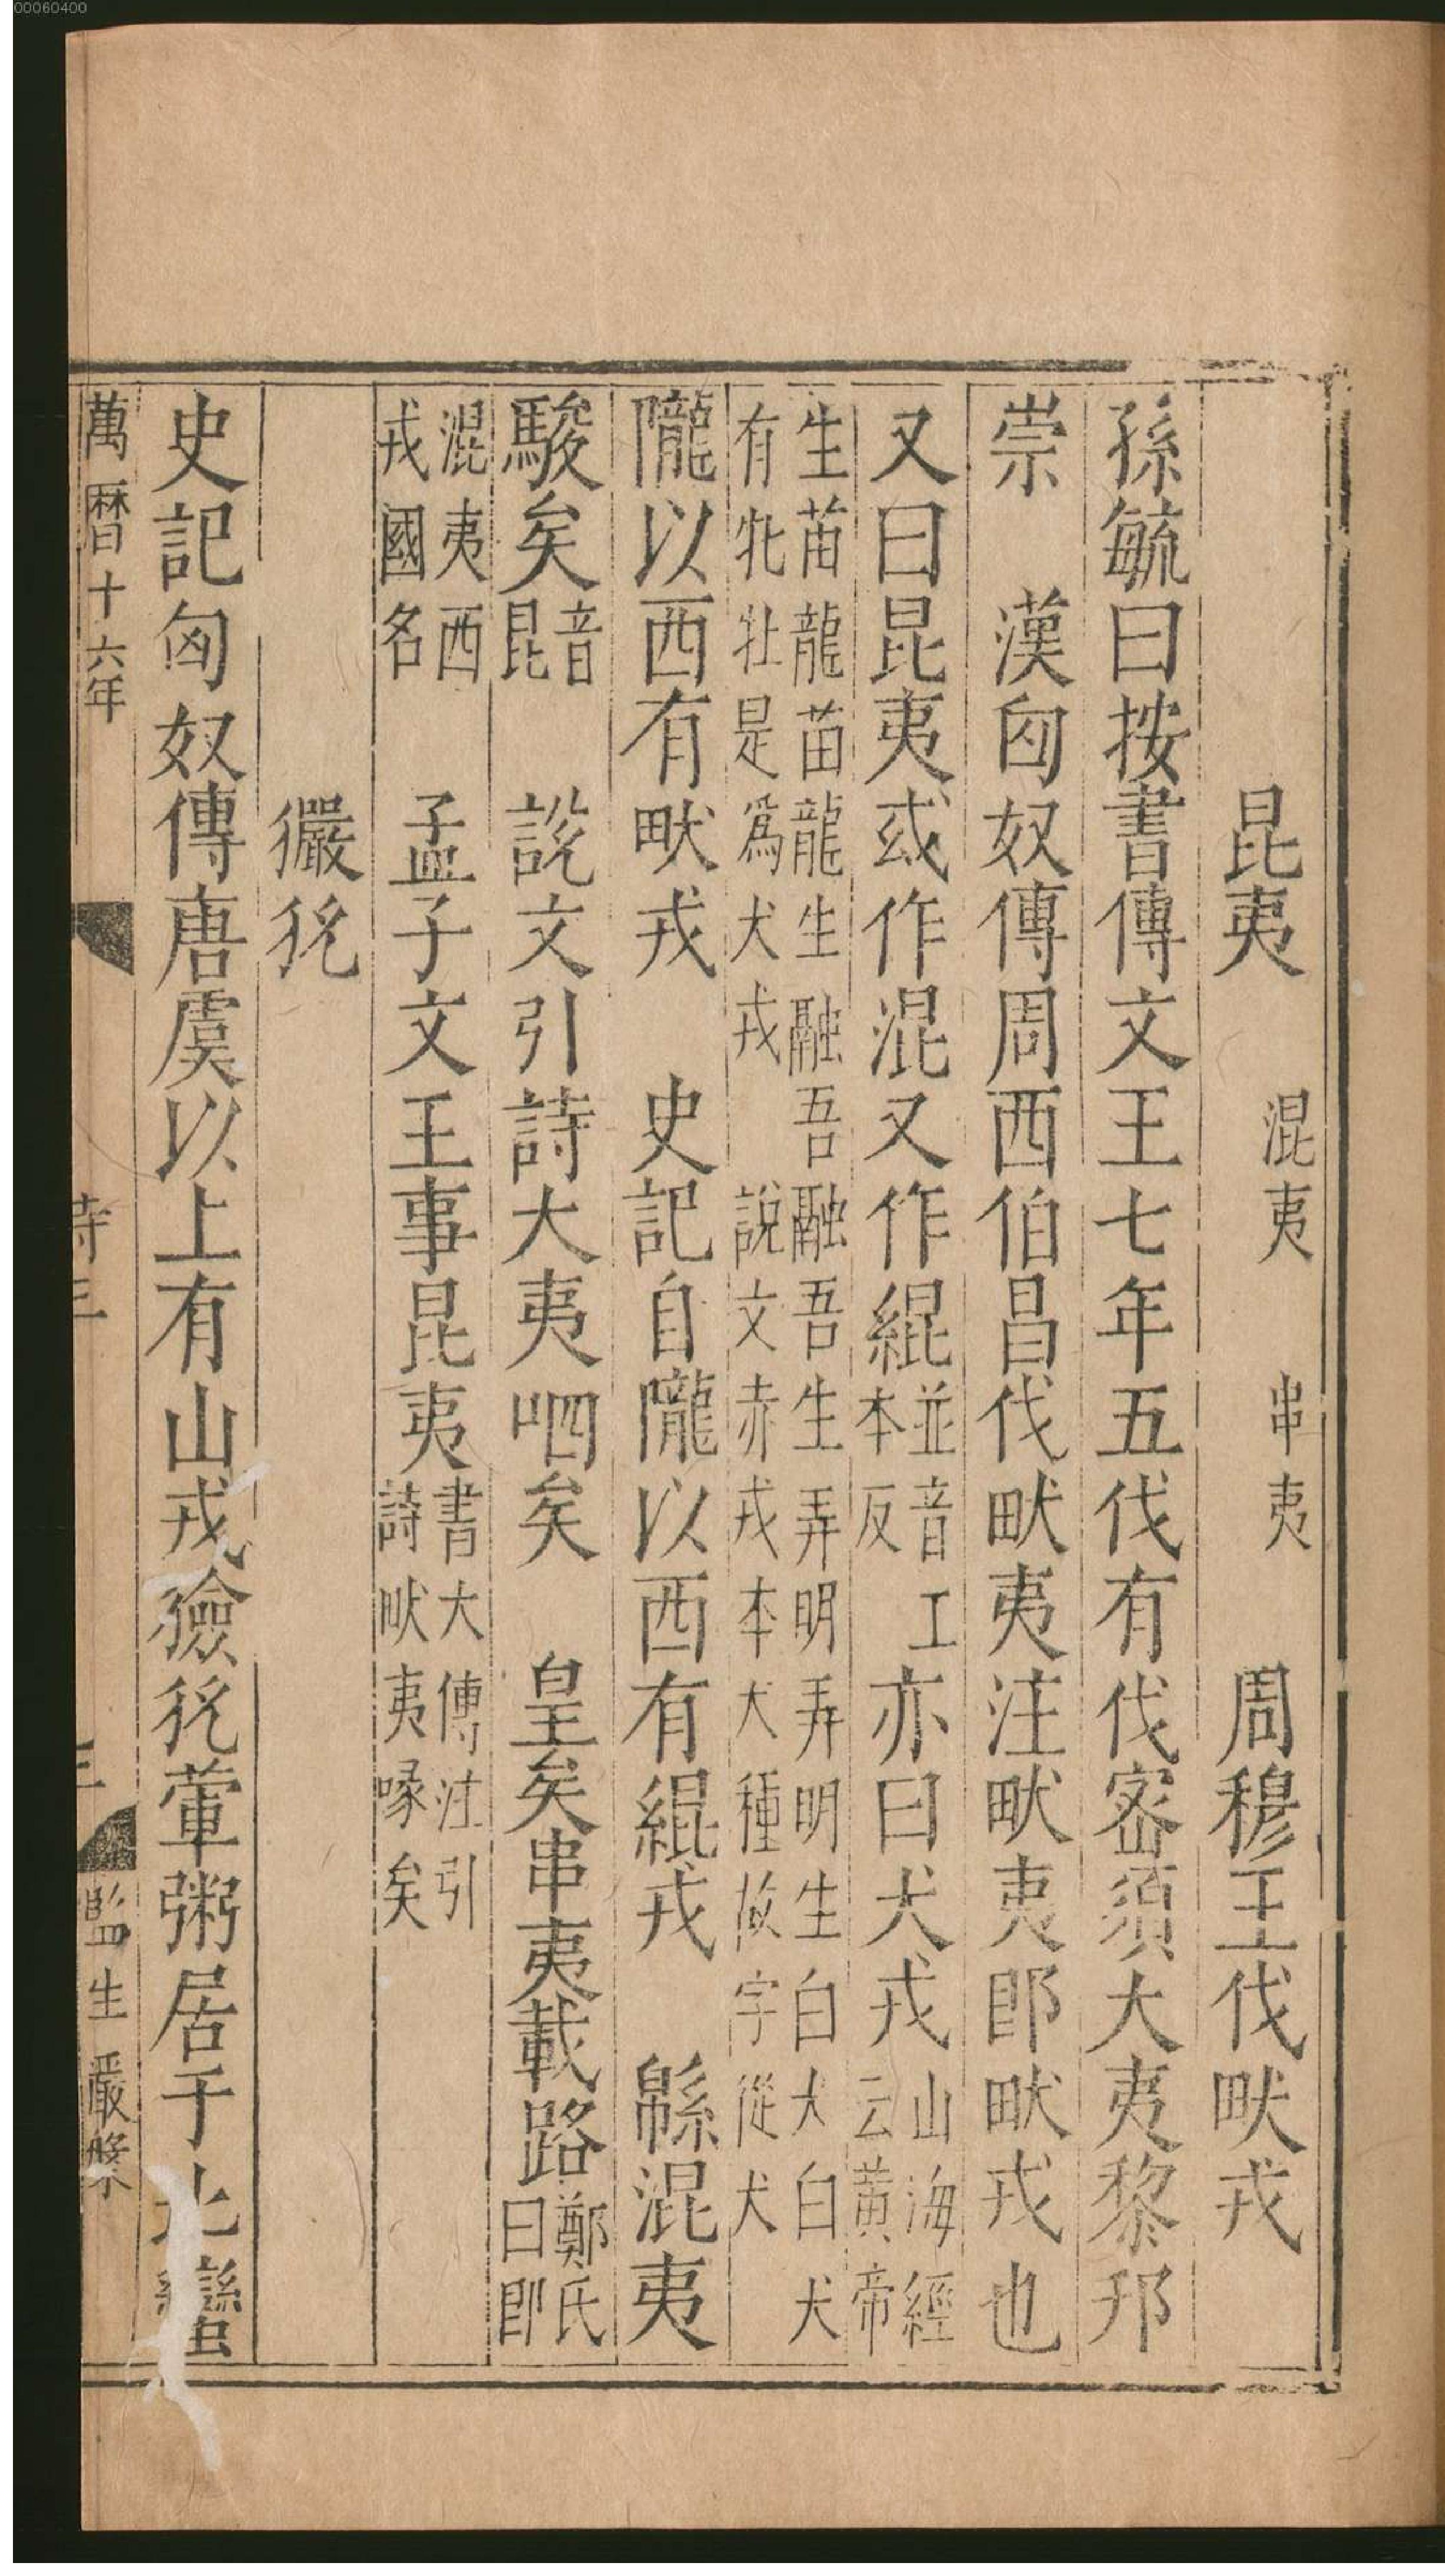 00060400
昆夷　混夷　串夷　周穆王伐畎戎
孫毓曰按書傳文王七年五伐有伐密須大夷黎邘
崇　漢匈奴傳周西伯昌伐畎夷注畎夷卽畎戎也
又曰昆夷或作混又作緄並音工本反亦曰犬戎山海經云黃帝
生苗龍苗龍生融吾融吾生弄明弄明生白犬白犬
有牝牡是爲犬戎　說文赤戎本犬種故字從犬
隴以西有畎戎　史記自隴以西有緄戎　緜混夷
駿矣音昆　說文引詩大夷呬矣　皇矣串夷載路鄭氏曰卽
混夷西戎國名　孟子文王事昆夷書大傳注引詩畎夷喙矣
玁狁
史記匈奴傳唐虞以上有山戎獫狁葷粥居于北蠻
萬曆十六年　詩三　三　監生嚴